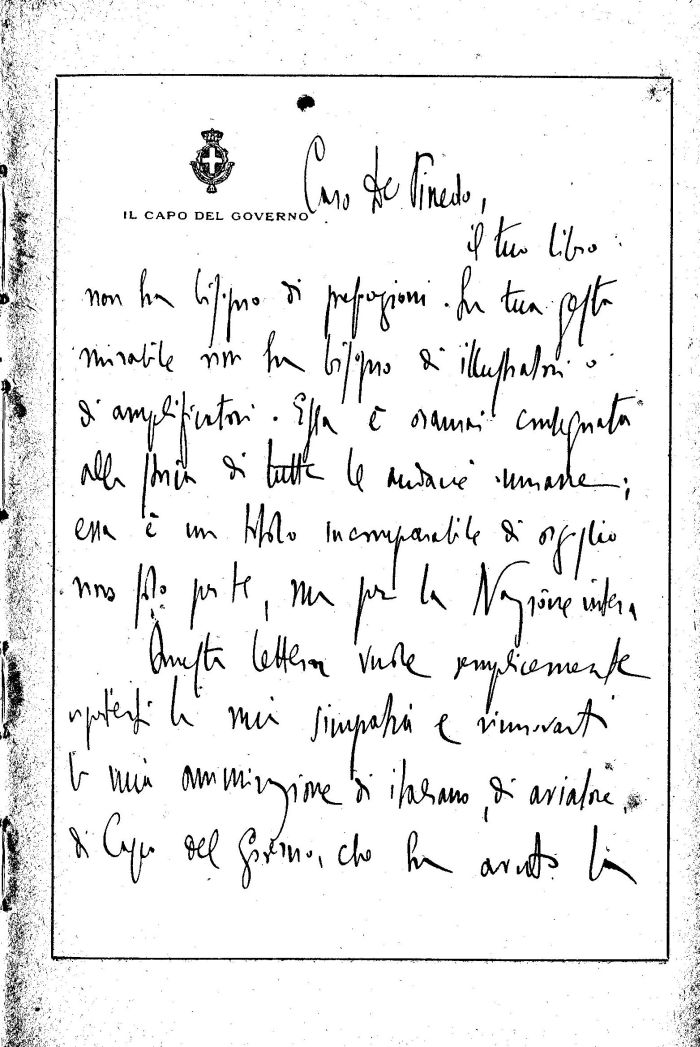 IL CAPO DEL GOVERNO
Caro De Pinedo,
il tuo libro
non ha bisogno di prefazioni. La tua gesta
mirabile non ha bisogno di illustratori o
di amplificatori. Essa è oramai consegnata
alla storia di tutte le audacie umane;
essa è un titolo incomparabile di orgoglio
non solo per te, ma per la Nazione intera
Questa lettera vuole semplicemente
ripeterti la mia simpatia e rinnovarti
la mia ammirazione di italiano, di aviatore,
di Capo del Governo, che ha avuto la